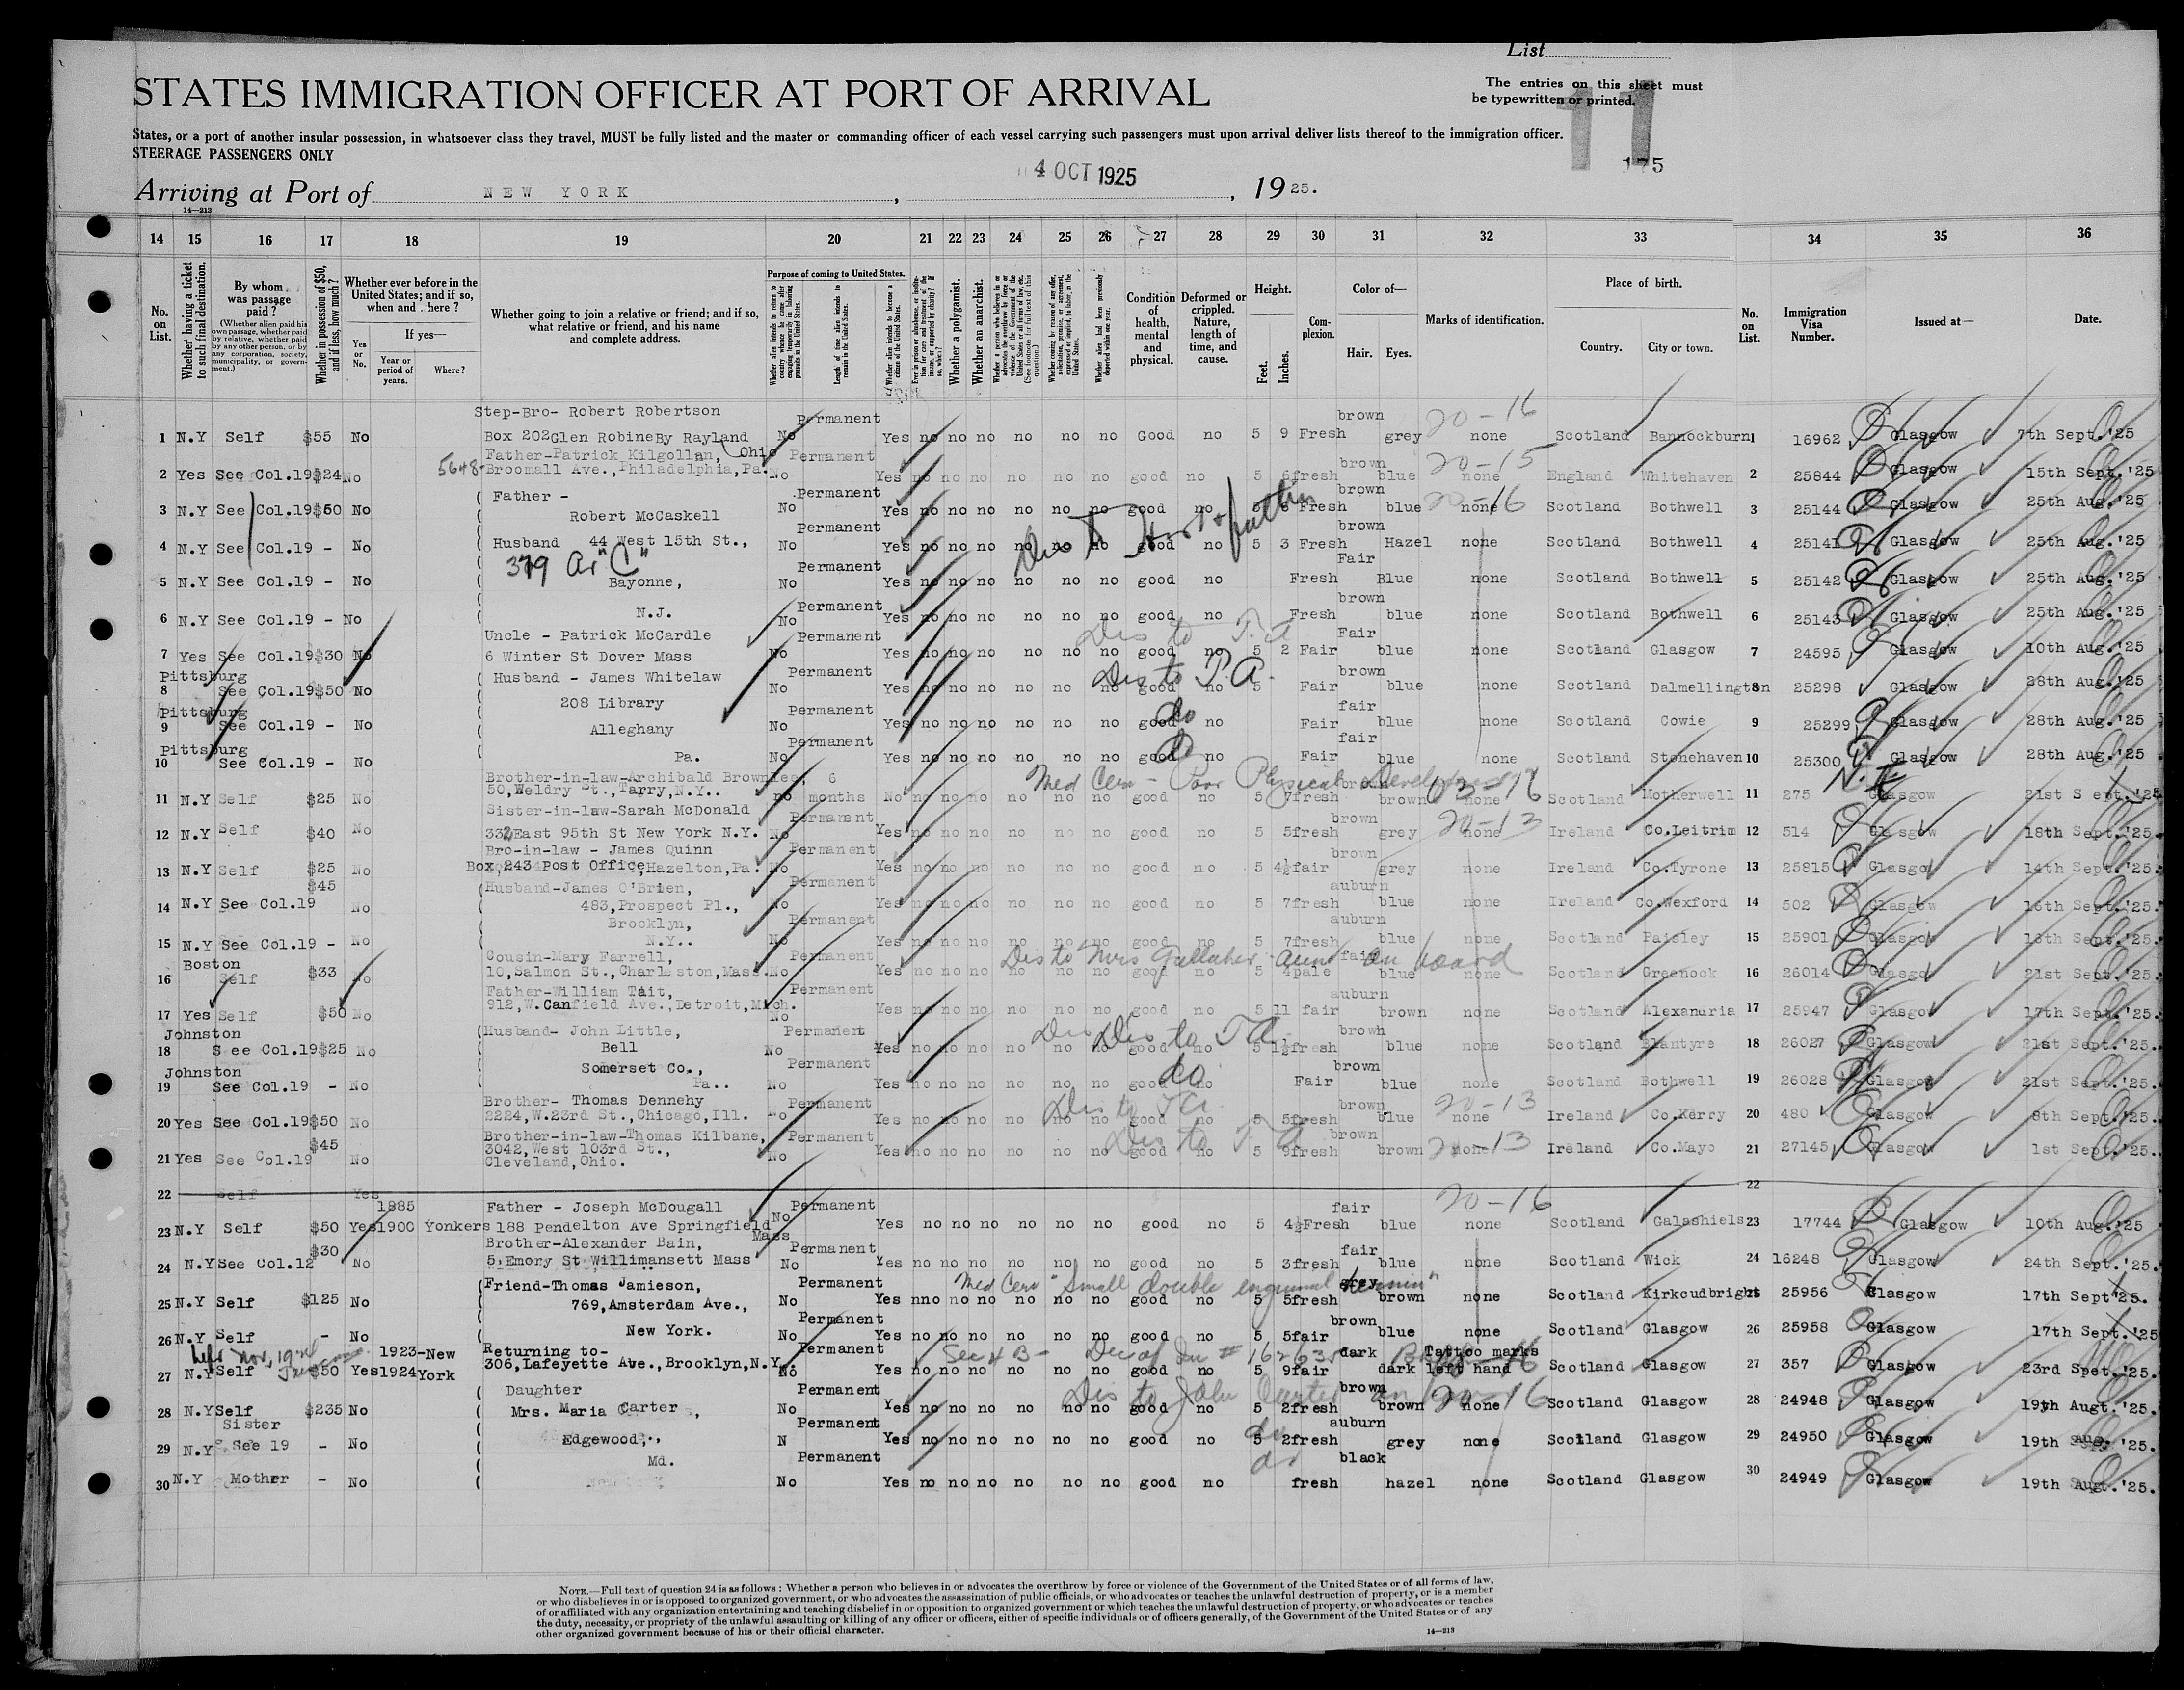 List
STATES IMMIGRATION OFFICER AT PORT OF ARRIVAL
The entries on this sheet must
be typewritten or printed.
11
175
States, or a port of another insular possession, in whatsoever class they travel, MUST be fully listed and the master or commanding officer of each vessel carrying such passengers must upon arrival deliver lists thereof to the immigration officer.
STEERAGE PASSENGERS ONLY
Arriving at Port of NEW YORK, 4 OCT 1925, 1925.
14—213
14 15 16 17 18 19 20 21 22 23 24 25 26 27 28 29 30 31 32 33 34 35 36
No. on List.
Whether having a ticket to such final destination.
By whom was passage paid?
(Whether alien paid his own passage, whether paid by relative, whether paid by any other person, or by any corporation, society, municipality, or government.)
Whether in possession of $50, and if less, how much?
Whether ever before in the United States; and if so, when and where?
Yes or No.
If yes—
Year or period of years.
Where?
Whether going to join a relative or friend; and if so, what relative or friend, and his name and complete address.
Purpose of coming to United States.
Length of time alien intends to remain in the United States.
Whether alien intends to become a citizen of the United States.
Whether a polygamist.
Whether an anarchist.
Condition of health, mental and physical.
Deformed or crippled. Nature, length of time, and cause.
Height.
Feet. Inches.
Complexion.
Color of—
Hair. Eyes.
Marks of identification.
Place of birth.
Country. City or town.
No. on List.
Immigration Visa Number.
Issued at—
Date.
Step-Bro- Robert Robertson Permanent brown 20-16
1 N.Y Self $55 No Box 202 Glen RobineBy Rayland Ohio No Yes no no no no no no Good no 5 9 Fresh grey none Scotland Bannockburn 1 16962 Glasgow 7th Sept.'25
Father-Patrick Kilgollan, Permanent brown 20-15
2 Yes See Col.19 $24 No 5648- Broomall Ave., Philadelphia, Pa. No Yes no no no no no no good no 5 6 fresh blue none England Whitehaven 2 25844 Glasgow 15th Sept.'25
Father - Permanent brown 20-16
3 N.Y See Col.19 $50 No Robert McCaskell No Yes no no no no no no good no 5 8 Fresh blue none Scotland Bothwell 3 25144 Glasgow 25th Aug.'25
Permanent brown
4 N.Y See Col.19 - No Husband 44 West 15th St., No Yes no no no no no no good no 5 3 Fresh Hazel none Scotland Bothwell 4 25141 Glasgow 25th Aug.'25
Permanent Fair
5 N.Y See Col.19 - No Bayonne, No Yes no no no no no no good no Fresh Blue none Scotland Bothwell 5 25142 Glasgow 25th Aug.'25
Permanent brown
6 N.Y See Col.19 - No N.J. No Yes no no no no no no good no Fresh blue none Scotland Bothwell 6 25143 Glasgow 25th Aug.'25
Uncle - Patrick McCardle Permanent Dis to T.A Fair
7 Yes See Col.19 $30 No 6 Winter St Dover Mass No Yes no no no no no no good no 5 2 Fair blue none Scotland Glasgow 7 24595 Glasgow 10th Aug.'25
Pittsburg Husband - James Whitelaw Permanent Dis to T.A. brown
8 See Col.19 $50 No No Yes no no no no no no good no 5 Fair blue none Scotland Dalmellington 8 25298 Glasgow 28th Aug.'25
Pittsburg 208 Library Permanent do fair
9 See Col.19 - No Alleghany No Yes no no no no no no good no Fair blue none Scotland Cowie 9 25299 Glasgow 28th Aug.'25
Pittsburg Permanent do fair
10 See Col.19 - No Pa. No Yes no no no no no no good no Fair blue none Scotland Stonehaven 10 25300 Glasgow 28th Aug.'25
Brother-in-law-Archibald Brownlee, 6 Med Cert - Poor Physical Development
11 N.Y Self $25 No 50, Weldry St., Tarry, N.Y.. no months No no no no no no no good no 5 7 fresh brown none Scotland Motherwell 11 275 Glasgow 21st Sept.'25
Sister-in-law-Sarah McDonald Permanent brown 20-13
12 N.Y Self $40 No 332 East 95th St New York N.Y. No Yes no no no no no no good no 5 5 fresh grey none Ireland Co.Leitrim 12 514 Glasgow 18th Sept.'25.
Bro-in-law - James Quinn Permanent brown
13 N.Y Self $25 No Box, 243 Post Office, Hazelton, Pa. No Yes no no no no no no good no 5 4½ fair grey none Ireland Co.Tyrone 13 25815 Glasgow 14th Sept.'25.
$45 Husband-James O'Brien, Permanent auburn
14 N.Y See Col.19 No 483, Prospect Pl., No Yes no no no no no no good no 5 7 fresh blue none Ireland Co.Wexford 14 502 Glasgow 16th Sept.'25.
Brooklyn, Permanent auburn
15 N.Y See Col.19 - No N.Y.. No Yes no no no no no no good no 5 7 fresh blue none Scotland Paisley 15 25901 Glasgow 16th Sept.'25.
Boston Cousin-Mary Farrell, Permanent Dis to Mrs Gallaher Aunt on board fair
16 Self $33 No 10, Salmon St., Charleston, Mass. No Yes no no no no no no good no 5 4 pale blue none Scotland Greenock 16 26014 Glasgow 21st Sept.'25.
Father-William Tait, Permanent auburn
17 Yes Self $50 No 912, W. Canfield Ave., Detroit, Mich. No Yes no no no no no no good no 5 11 fair brown none Scotland Alexandria 17 25947 Glasgow 17th Sept.'25.
Johnston Husband- John Little, Permanent Dis to T.A. brown
18 See Col.19 $25 No Bell No Yes no no no no no no good no 5 1½ fresh blue none Scotland Blantyre 18 26027 Glasgow 21st Sept.'25.
Johnston Somerset Co., Permanent do brown
19 See Col.19 - No Pa.. No Yes no no no no no no good no Fair blue none Scotland Bothwell 19 26028 Glasgow 21st Sept.'25.
Brother- Thomas Dennehy Permanent Dis to T.A. brown 20-13
20 Yes See Col.19 $50 No 2224, W.23rd St., Chicago, Ill. No Yes no no no no no no good no 5 5 fresh blue none Ireland Co.Kerry 20 480 Glasgow 8th Sept.'25.
$45 Brother-in-law-Thomas Kilbane, Permanent Dis to T.A brown 20-13
21 Yes See Col.19 No 3042, West 103rd St., No Yes no no no no no no good no 5 9 fresh brown none Ireland Co.Mayo 21 27145 Glasgow 1st Sept.'25.
Cleveland, Ohio.
22 Self Yes 22
1885 Father - Joseph McDougall Permanent fair 20-16
23 N.Y Self $50 Yes 1900 Yonkers 188 Pendelton Ave Springfield Mass No Yes no no no no no no good no 5 4½ Fresh blue none Scotland Galashiels 23 17744 Glasgow 10th Aug.'25
$30 Brother-Alexander Bain, Permanent fair
24 N.Y See Col.12 No 5, Emory St Willimansett Mass No Yes no no no no no no good no 5 3 fresh blue none Scotland Wick 24 16248 Glasgow 24th Sept.'25.
Friend-Thomas Jamieson, Permanent Med Cert "Small double inguinal hernia" grey
25 N.Y Self $125 No 769, Amsterdam Ave., No Yes nno no no no no no good no 5 5 fresh brown none Scotland Kirkcudbright 25 25956 Glasgow 17th Sept'25.
Permanent brown
26 N.Y Self - No New York. No Yes no no no no no no good no 5 5 fair blue none Scotland Glasgow 26 25958 Glasgow 17th Sept.'25
1923-New Returning to- Permanent Sec 4 B - dark Tattoo marks
27 N.Y Self $50 Yes 1924 York 306, Lafeyette Ave., Brooklyn, N.Y. No Yes no no no no no no good no 5 9 fair dark left hand Scotland Glasgow 27 357 Glasgow 23rd Spet.'25.
Daughter Permanent Dis to John Carter brown 20-16
28 N.Y Self $235 No Mrs. Maria Carter, No Yes no no no no no no good no 5 2 fresh brown none Scotland Glasgow 28 24948 Glasgow 19th Augt.'25.
Sister Permanent do auburn
29 N.Y See 19 - No Edgewood, N Yes no no no no no no good no 5 2 fresh grey none Scotland Glasgow 29 24950 Glasgow 19th Aug.'25.
Md. Permanent do black
30 N.Y Mother - No No Yes no no no no no no good no fresh hazel none Scotland Glasgow 30 24949 Glasgow 19th Augt.'25.
NOTE.—Full text of question 24 is as follows: Whether a person who believes in or advocates the overthrow by force or violence of the Government of the United States or of all forms of law,
or who disbelieves in or is opposed to organized government, or who advocates the assassination of public officials, or who advocates or teaches the unlawful destruction of property, or is a member
of or affiliated with any organization entertaining and teaching disbelief in or opposition to organized government or which teaches the unlawful destruction of property, or who advocates or teaches
the duty, necessity, or propriety of the unlawful assaulting or killing of any officer or officers, either of specific individuals or of officers generally, of the Government of the United States or of any
other organized government because of his or their official character.
14—213